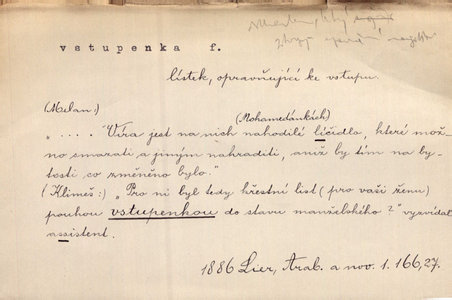 vstupenka f.
lístek, opravňující ke vstupu.
(Milan:) (Mohamedánkách)
" . . . . "Víra jest na nich nahodilé líčidlo, které mož-
no smazati a jiným nahraditi, aniž by tím na by-
tosti co změněno bylo."
(Klimeš:) „Pro ni byl tedy křestní list (pro vaši ženu)
pouhou vstupenkou do stavu manželského?" vyzvídal
assistent.
1886 Lier, Arab. a nov. 1. 166,27.